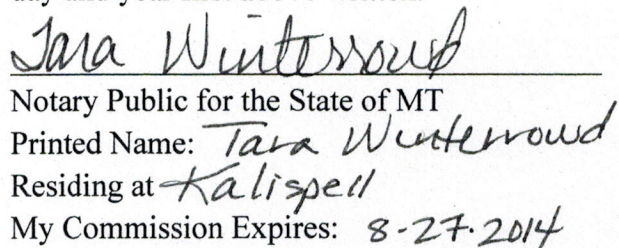 Tara Winterrowd
Notary Public for the State of MT
Printed Name: Tara Winterrowd
Residing at Kalispell
My Commission Expires: 8-27-2014